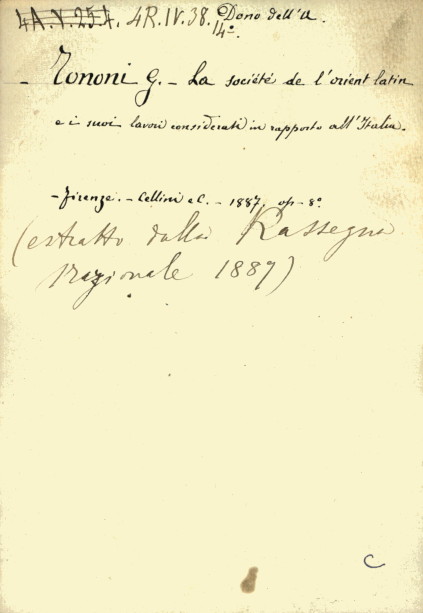 4A.V.254. 4R.IV.38. Dono dell'A.
14°.
- Tononi G. - La société de l'orient latin
e i suoi lavori considerati in rapporto all'Italia.
- Firenze. - Cellini e C. - 1887. op - 8°
(estratto dalla Rassegna
Nazionale 1887)
C